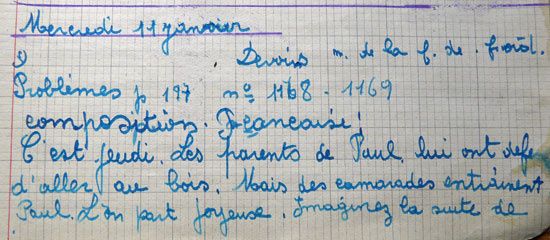 Mercredi 11 janvier
Devoirs m. de la f. de. froid.
Problèmes p 197 nos 1168 - 1169
composition. Française!
C'est jeudi. Les parents de Paul, lui ont defe
d'aller au bois. Mais des camarades entrainent
Paul. L'on part joyeuse. Imaginez la suite de